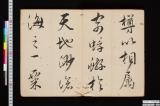 樽以相属
寄蜉蝣於
天地渺滄
海之一粟